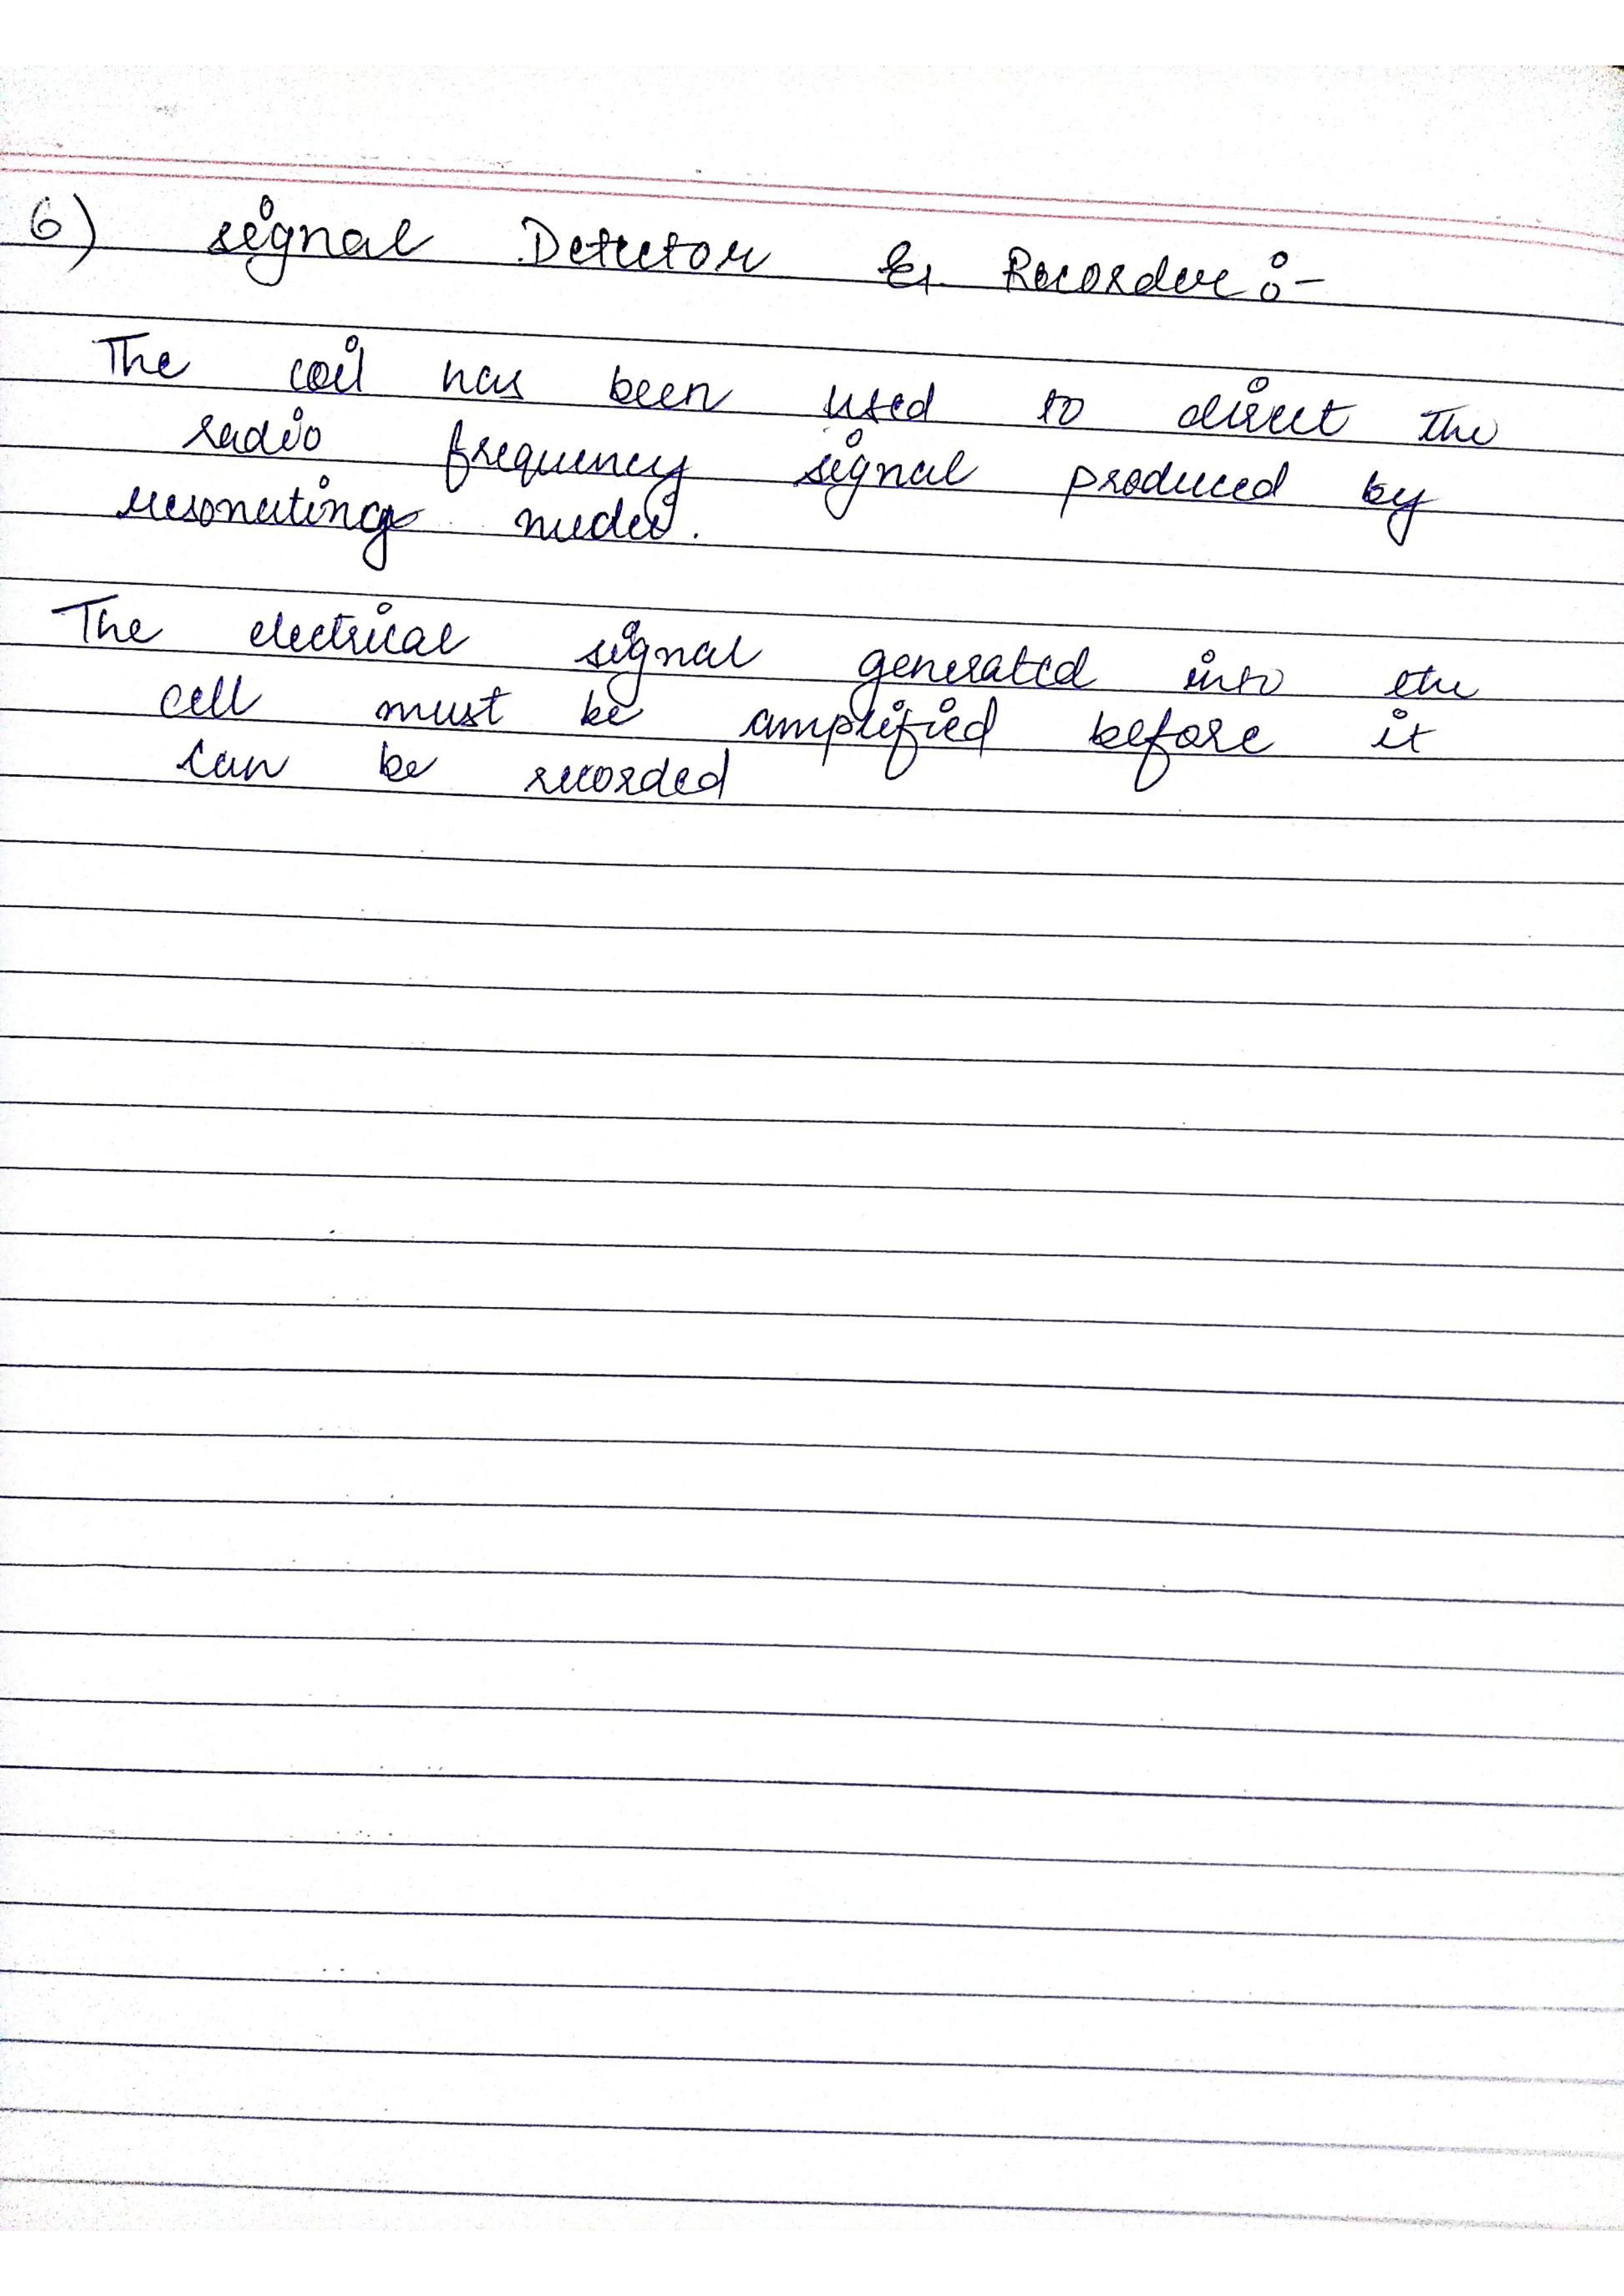 6) signal Detector & Recorder :-
The coil has been used to direct the
radio frequency signal produced by
resonating nuclei.
The electrical signal generated into the
cell must be amplified before it
can be recorded